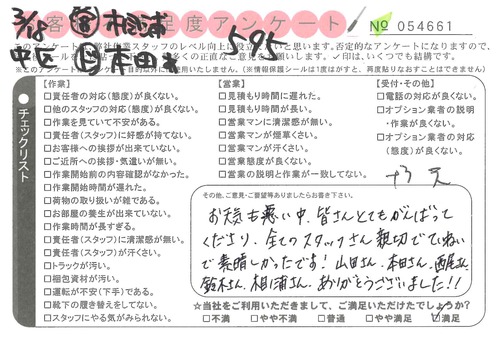 3/18 営 相浦
客 度アンケート
№ 054661
中区 本田
595
✓印は、いくつでも結構です。
(※情報保護シールは1度はがすと、再度貼りなおすことはできません)
チェックリスト
【作業】
□責任者の対応(態度)が良くない。
□他のスタッフの対応(態度)が良くない。
□作業を見ていて不安がある。
□責任者(スタッフ)に好感が持てない。
□お客様への挨拶が出来ていない。
□ご近所への挨拶・気遣いが無い。
□作業開始前の内容確認がなかった。
□作業開始時間が遅れた。
□荷物の取り扱いが雑である。
□お部屋の養生が出来ていない。
□作業時間が長すぎる。
□責任者(スタッフ)に清潔感が無い。
□責任者(スタッフ)が汗くさい。
□トラックが汚い。
□梱包資材が汚い。
□運転が不安(下手)である。
□靴下の履き替えをしてない。
□スタッフにやる気がみられない。
【営業】
□見積もり時間に遅れた。
□見積もり時間が長い。
□営業マンに清潔感が無い。
□営業マンが煙草くさい。
□営業マンが汗くさい。
□営業態度が良くない。
□営業の説明と作業が一致してない。
【受付・その他】
□電話の対応が良くない。
□オプション業者の説明
・作業が良くない。
□オプション業者の対応
(態度)が良くない。
その他、ご意見・ご要望等ありましたらお書き下さい。
お天気も悪い中、皆さんとてもがんばって
くださり、全てのスタッフさん親切でていねい
で素晴しかったです！山田さん、本田さん、西尾さん
鈴木さん、相浦さん、ありがとうございました！！
☆当社をご利用いただきまして、ご満足いただけたでしょうか？
□不満 □やや不満 □普通 □やや満足 ☑満足